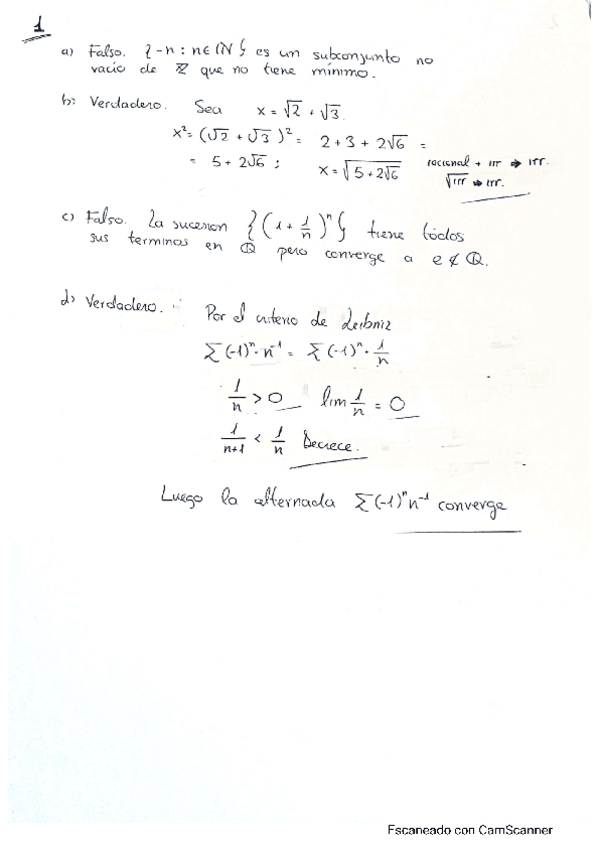 1
a) Falso. {-n : n ∈ ℕ} es un subconjunto no
vacío de ℤ que no tiene mínimo.
b) Verdadero. Sea x = √2 + √3
x² = (√2 + √3)² = 2 + 3 + 2√6 =
= 5 + 2√6 ; x = √(5 + 2√6) racional + irr ⇒ irr.
√irr ⇒ irr.
c) Falso. La sucesion {(1 + 1/n)^n} tiene todos
sus terminos en ℚ pero converge a e ∉ ℚ.
d) Verdadero. Por el criterio de Leibniz
Σ(-1)^n · n^-1 = Σ(-1)^n · 1/n
1/n > 0 lim 1/n = 0
1/(n+1) < 1/n Decrece.
Luego la alternada Σ(-1)^n n^-1 converge
Escaneado con CamScanner